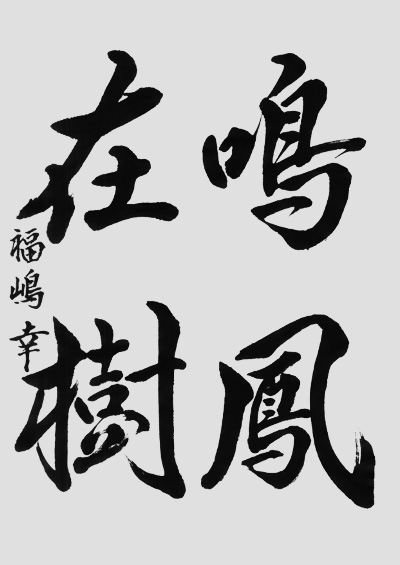 鳴鳳
在樹
福嶋幸